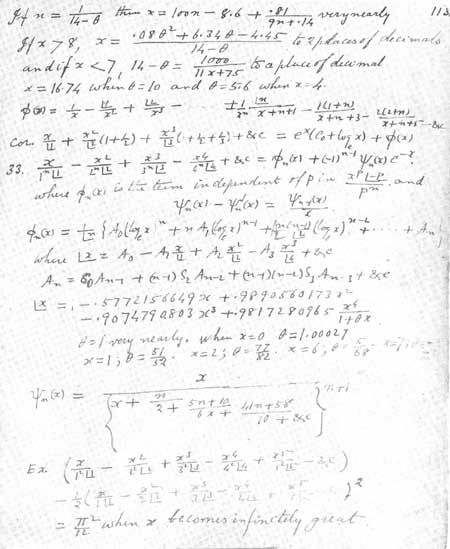 If n = 1/(14-θ) then x = 100n - 8.6 + .81/(9n+.14) very nearly 113
If x > 8, x = (.08θ² + 6.34θ - 4.45)/(14-θ) to 2 places of decimals
and if x < 7, 14-θ = 1000/(11x+75) to a place of decimal
x = 16.74 when θ=10 and θ=5.6 when x=4.
φ(x) = 1/x - |1/x² + |2/x³ -
Cor. x/|1 + x²/|2 (1+½) + x³/|3 (1+½+⅓) + &c = eˣ(C₀+logₑx) + φ(x)
33. x/1ⁿ|1 - x²/2ⁿ|2 + x³/3ⁿ|3 - x⁴/4ⁿ|4 + &c = φₙ(x) + (-1)ⁿ⁻¹ ψₙ(x) e⁻ˣ.
where φₙ(x) is the term independent of p in xᵖ|-p/pⁿ and
ψₙ(x) - ψₙ'(x) = ψₙ₋₁(x)/x
φₙ(x) = 1/|n {A₀(logₑx)ⁿ + n A₁(logₑx)ⁿ⁻¹ + n(n-1)/|2 (logₑx)ⁿ⁻² + ... + Aₙ}
where |x = A₀ - A₁ x/|1 + A₂ x²/|2 - A₃ x³/|3 + &c
Aₙ = C₀Aₙ₋₁ + (n-1)S₂Aₙ₋₂ + (n-1)(n-2)S₃Aₙ₋₃ + &c
|x = 1 - .5772156649x + .9890560173x²
- .9074790803x³ + .9817280965 x⁴/(1+θx)
θ=1 very nearly. when x=0 θ=1.00027
x=1; θ=51/52. x=2; θ=77/82. x=6; θ=5/68.
ψₙ(x) = x/{x + n/2 + (5n+10)/6x +
Ex. (x/1²|1 - x²/2²|2 + x³/3²|3 - x⁴/4²|4 + - &c)
- ½(x/1|1 - x²/2|2 + x³/3|3 - x⁴/4|4 + )²
= π²/12 when x becomes infinitely great